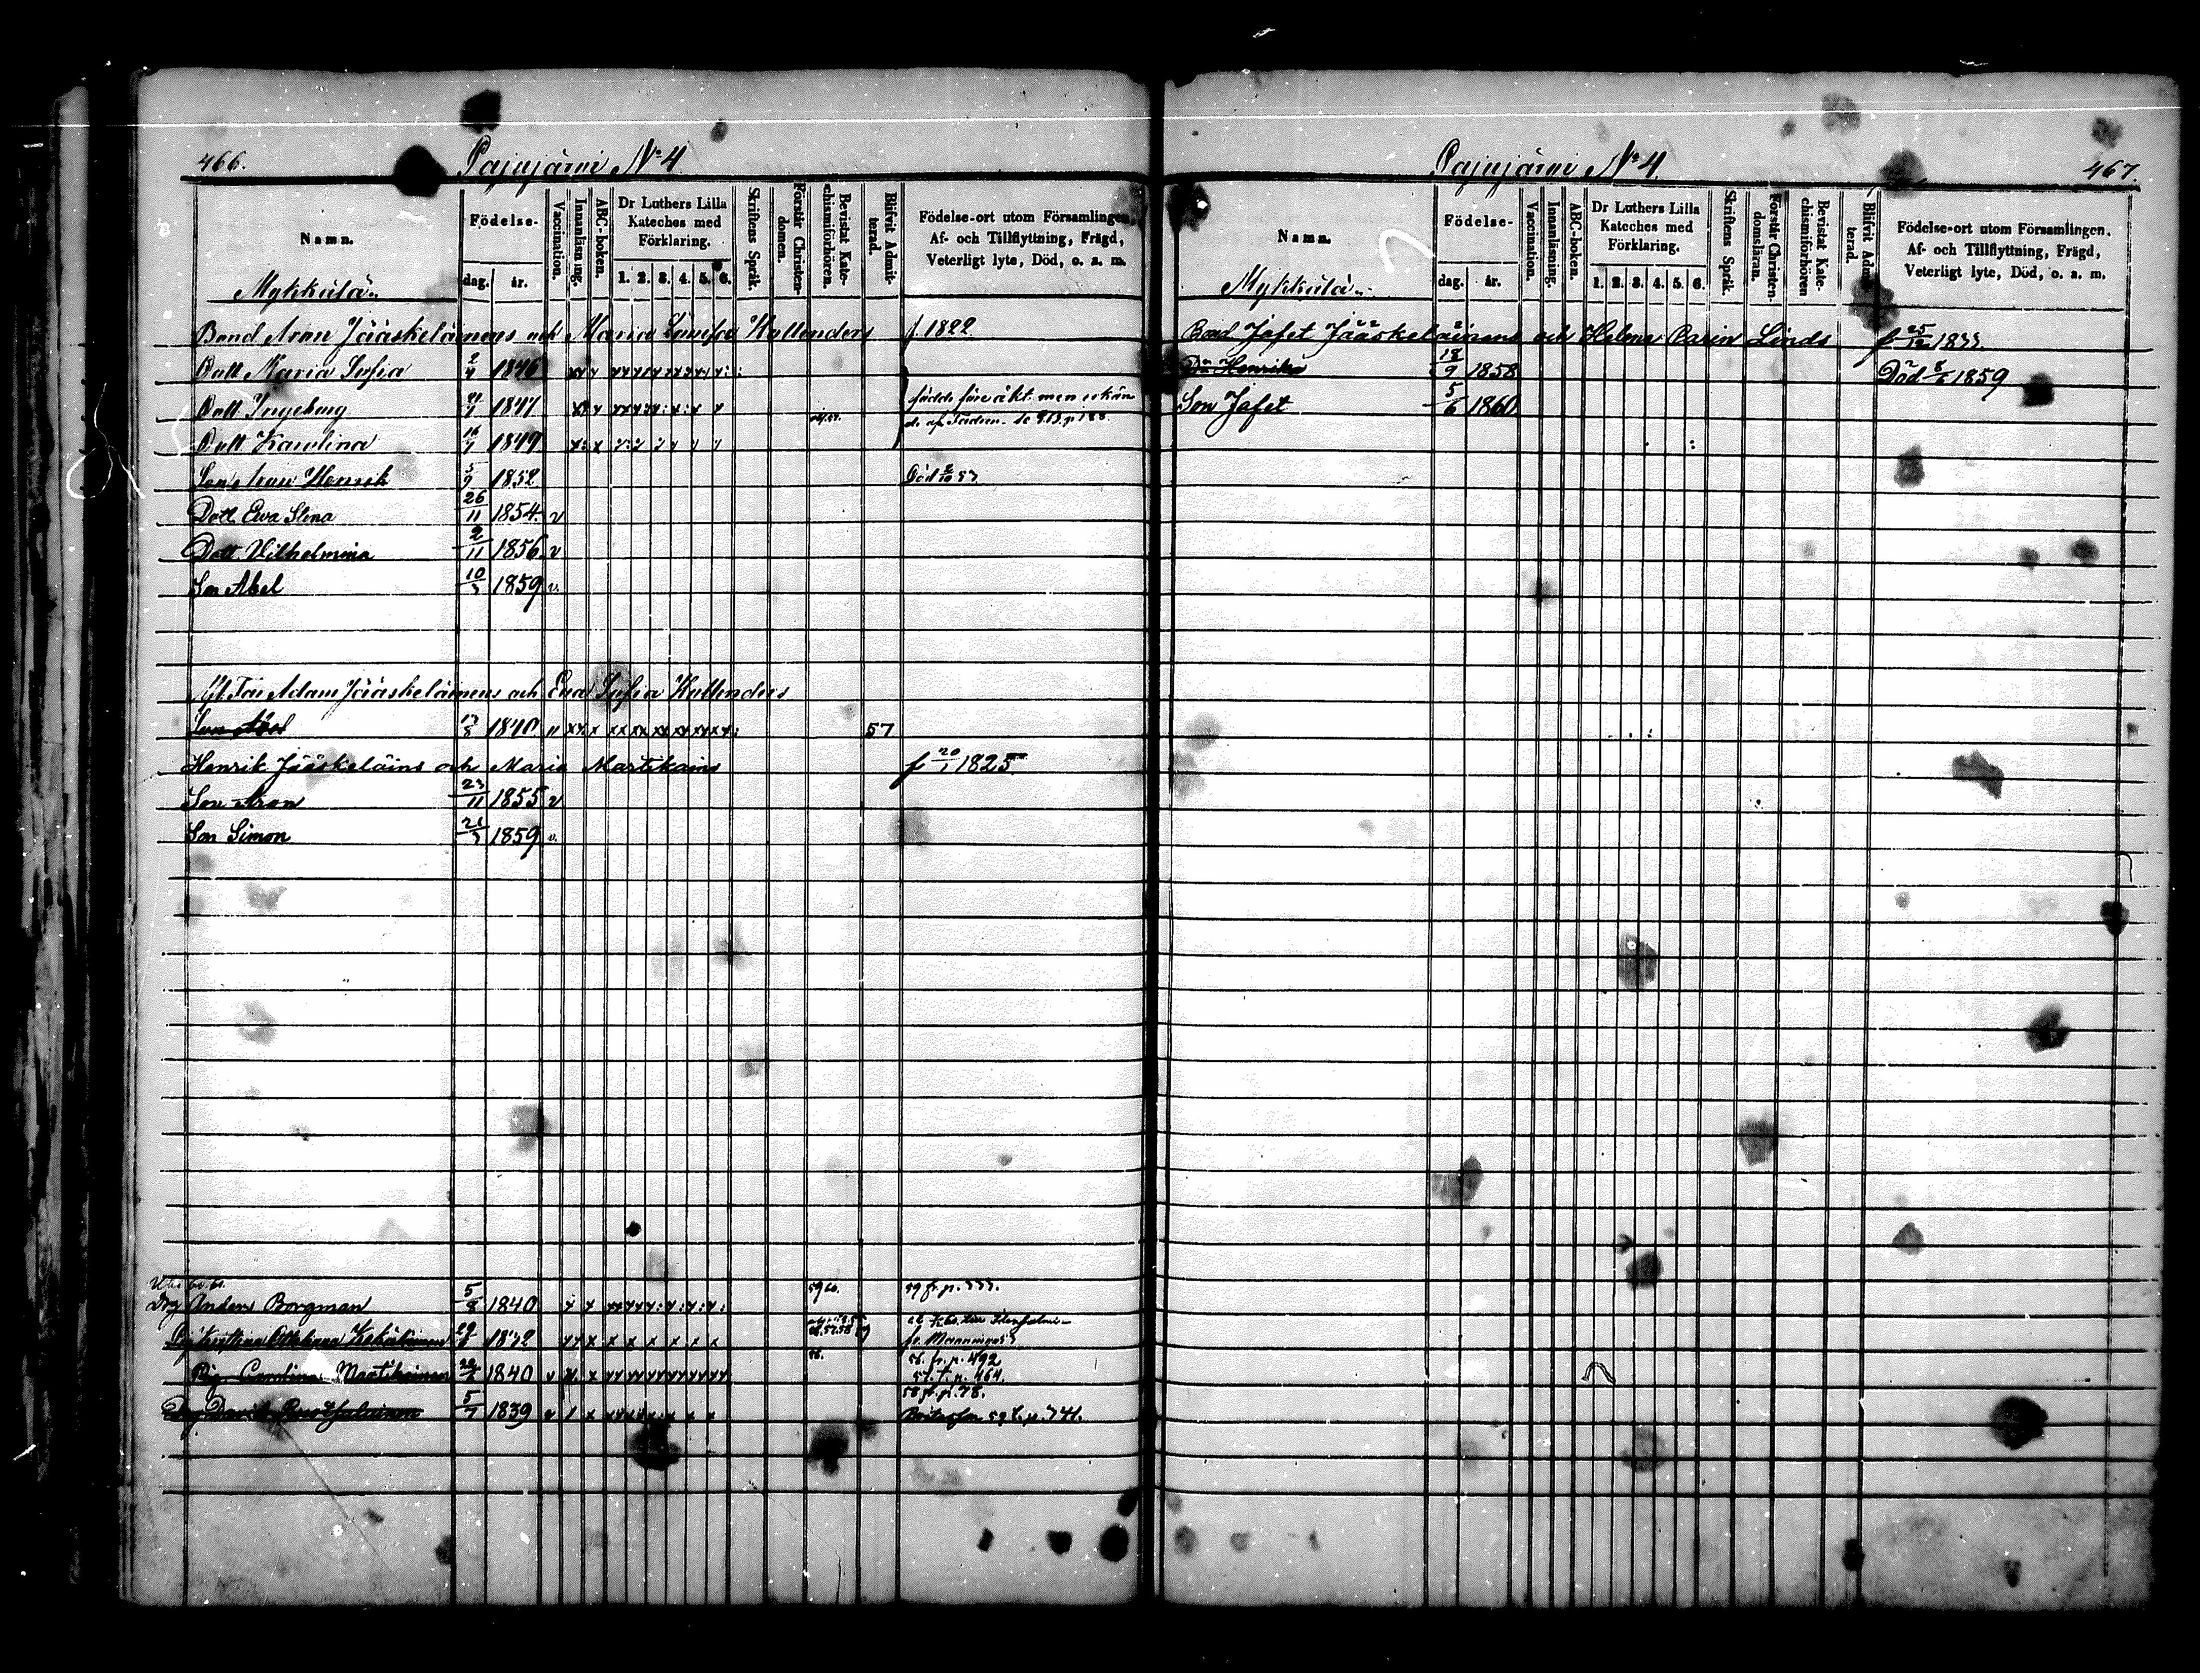 466.
Pajujärvi No 4
Namn.
Födelse-
dag.
år.
Vaccination.
Innanläsning.
ABC-boken.
Dr Luthers Lilla
Kateches med
Förklaring.
1. 2. 3. 4. 5. 6.
Skriftens Språk.
Förstår Christen-
domen.
Bevistat Kate-
chismiförhören.
Blifvit Admit-
terad.
Födelse-ort utom Församlingen,
Af- och Tillflyttning, Frägd,
Veterligt lyte, Död, o. s. m.
Mykkälä
Bond Aron Jääskeläinens och Maria Kyllenders f 1822
Dott Maria Sofia 1846
Dott Ingeborg 1847
Dott Karolina 1849
Son Aron Henrik 5/9 1852 Död 53
Dott Eva Stina 26/11 1854. v
Dott Vilhelmina 2/11 1856 v
Son Abel 10/5 1859 v.
Adam Jääskeläinens och Eva Sofia Kyllenders
Son 1840 57
Henrik Jääskeläins och Maria Martikains f 20/1 1825
Son Aron 23/11 1855 v
Son Simon 21/5 1859 v.
Drg Anders Borgman 5/8 1840 59 60. 59 fr. p. 333.
Kekäläinen 1832
Pig Carolina Martikainen 1840 56. 56. fr. p. 492
57. t. p. 464
Drg David 5/7 1839 58 fr. p. 78.
59 t. p. 341.
Pajujärvi No 4.
467.
Namn.
Födelse-
dag.
år.
Vaccination.
Innanläsning.
ABC-boken.
Dr Luthers Lilla
Kateches med
Förklaring.
1. 2. 3. 4. 5. 6.
Skriftens Språk.
Förstår Christen-
domsläran.
Bevistat Kate-
chismiförhören
Blifvit Admit-
terad.
Födelse-ort utom Församlingen.
Af- och Tillflyttning, Frägd,
Veterligt lyte, Död, o. s. m.
Mykkälä
Bond Jafet Jääskeläinens och Helena Carin Linds f 25/12 1833.
Henrika 18/9 1858 Död 1859
Son Jafet 5/6 1860